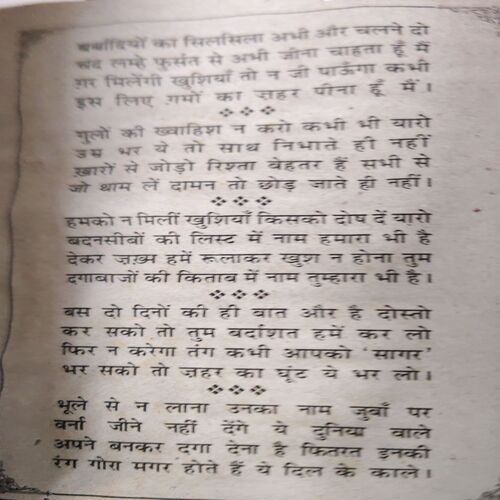 बर्बादियों का सिलसिला अभी और चलने दो
चंद लम्हे फुर्सत से अभी जीना चाहता हूँ मैं
ग़र मिलेंगी खुशियाँ तो न जी पाऊँगा कभी
इस लिए ग़मों का ज़हर पीना हूँ मैं।
गुलों की ख्वाहिश न करो कभी भी यारो
उम्र भर ये तो साथ निभाते ही नहीं
ख़ारों से जोड़ो रिश्ता बेहतर हैं सभी से
जो थाम लें दामन तो छोड़ जाते ही नहीं।
हमको न मिलीं खुशियाँ किसको दोष दें यारो
बदनसीबों की लिस्ट में नाम हमारा भी है
देकर ज़ख़्म हमें रूलाकर खुश न होना तुम
दगाबाजों की किताब में नाम तुम्हारा भी है।
बस दो दिनों की ही बात और है दोस्तो
कर सको तो तुम बर्दाशत हमें कर लो
फिर न करेगा तंग कभी आपको 'सागर'
भर सको तो ज़हर का घूंट ये भर लो।
भूले से न लाना उनका नाम जुबाँ पर
वर्ना जीने नहीं देंगे ये दुनिया वाले
अपने बनकर दगा देना है फितरत इनकी
रंग गोरा मगर होते हैं ये दिल के काले।